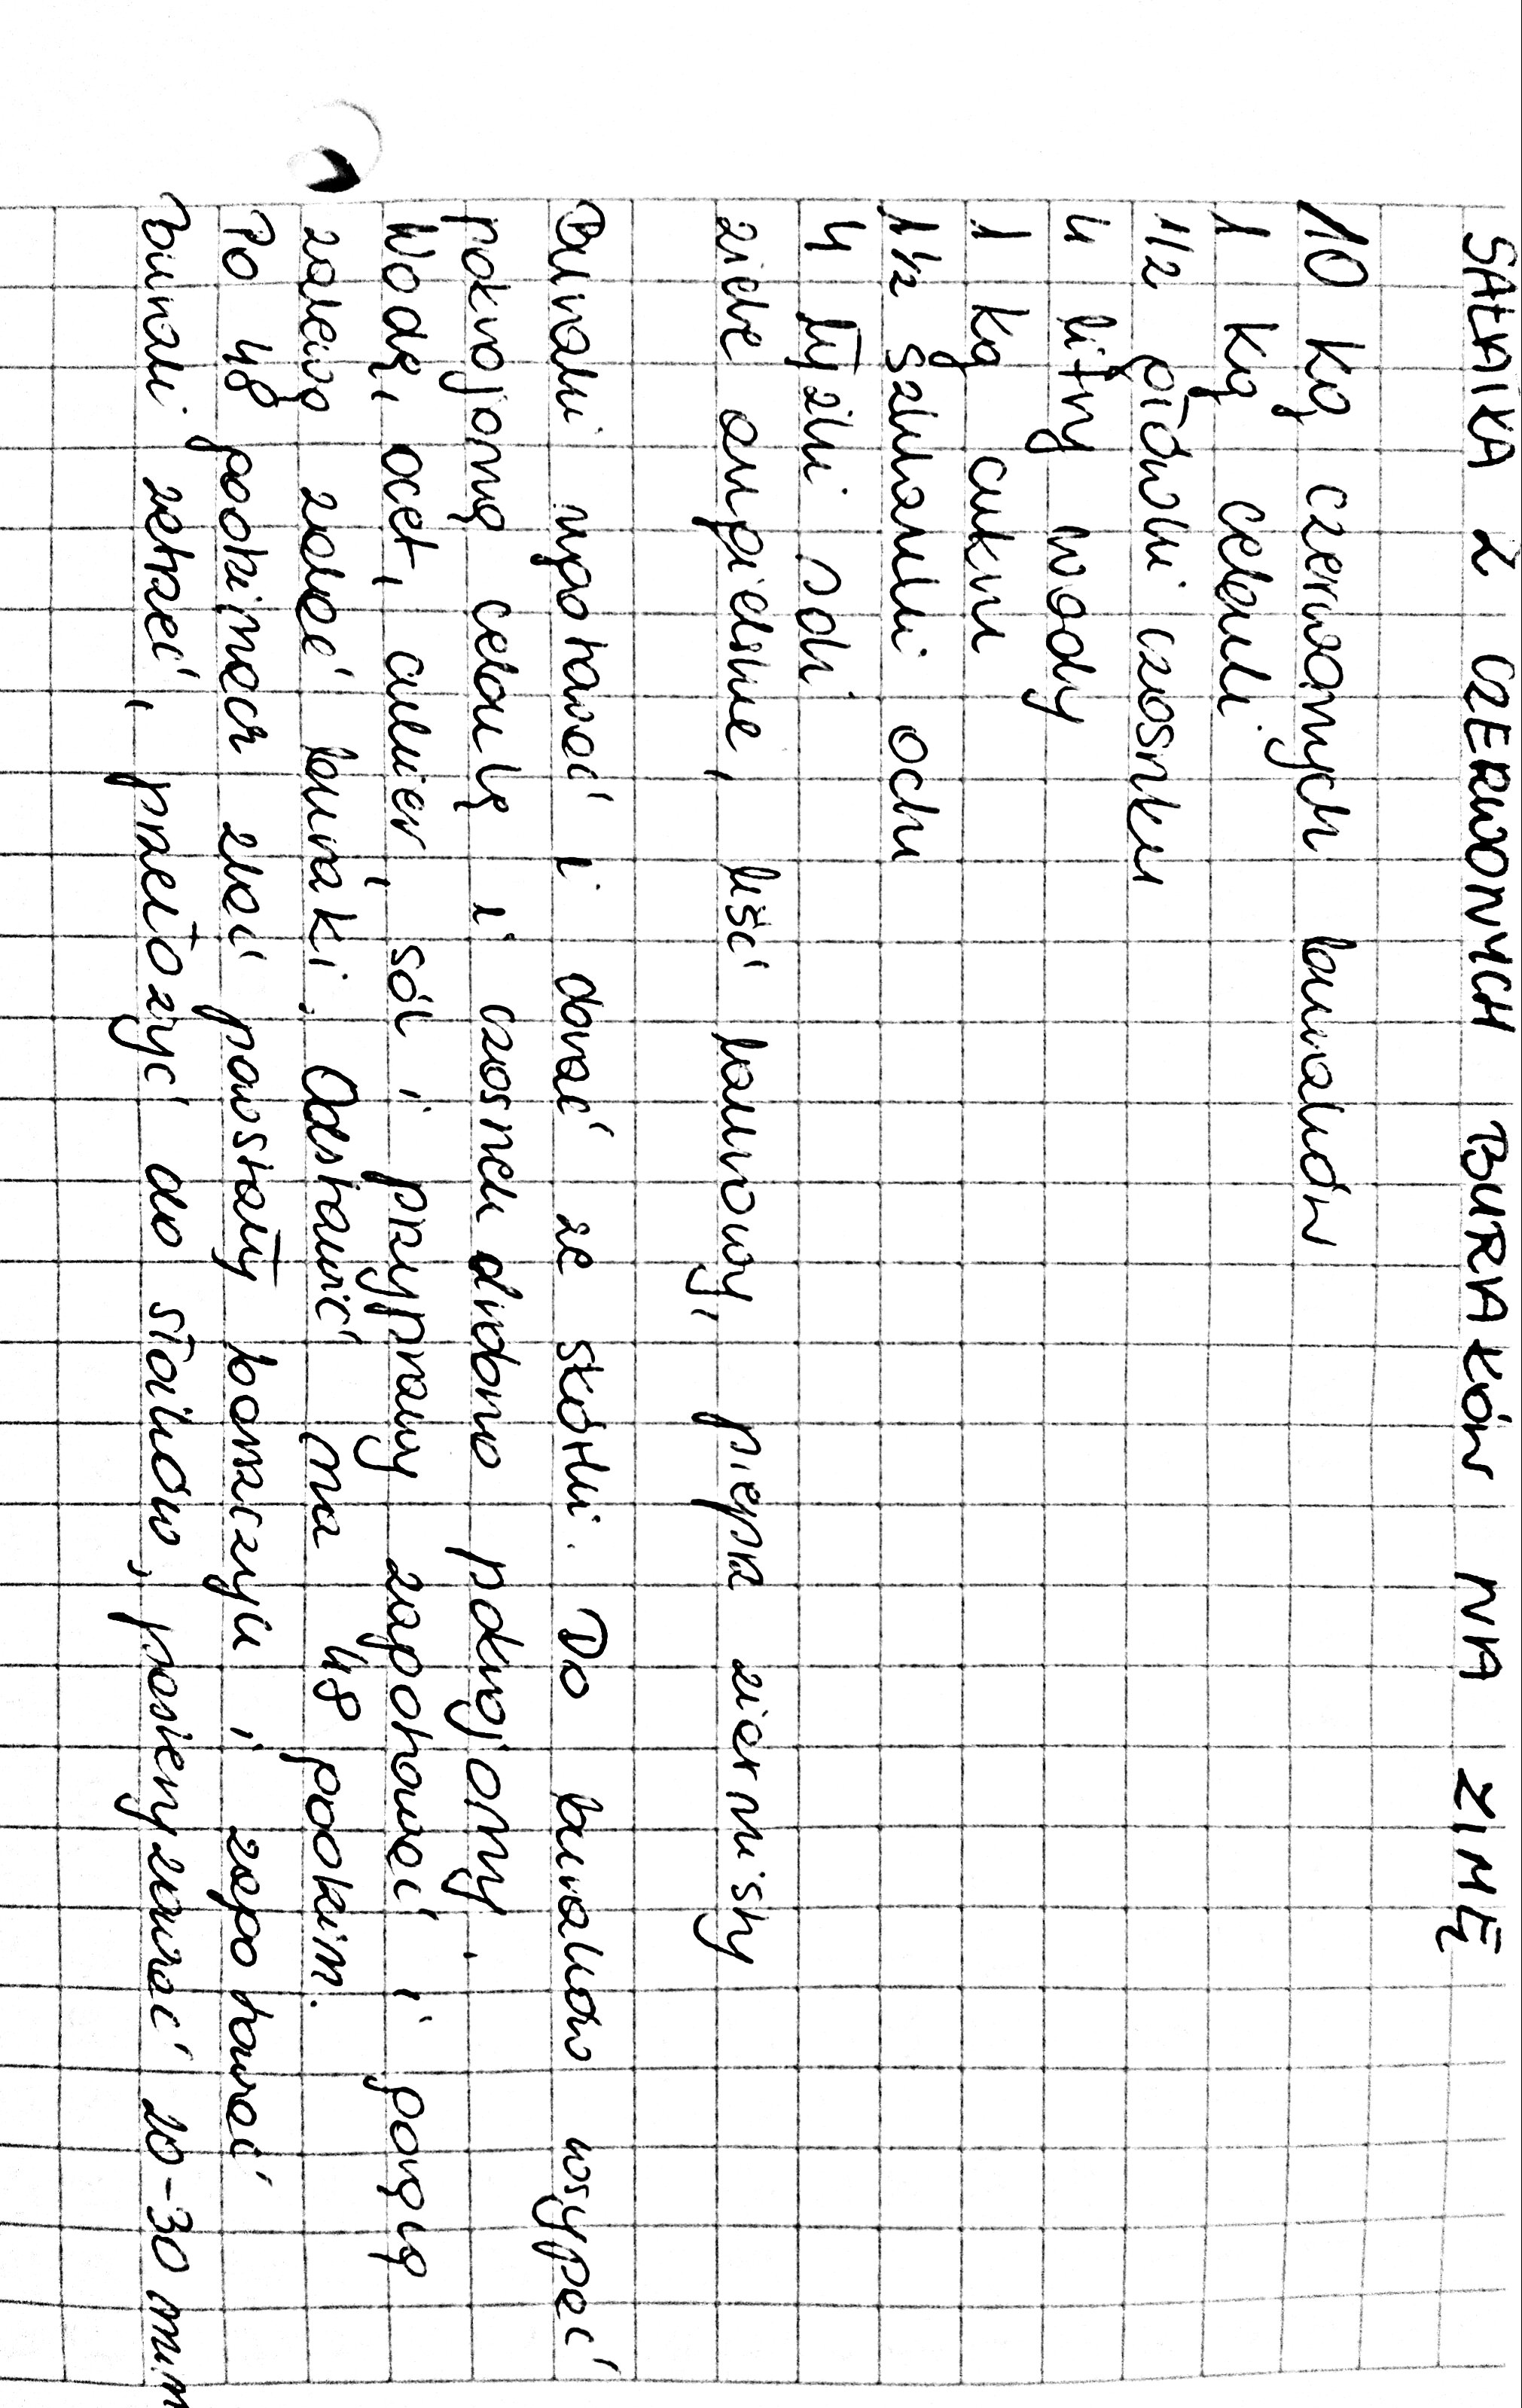 SAŁATKA Z CZERWONYCH BURAKÓW NA ZIMĘ
10 kg czerwonych buraków
1 kg cebuli
1/2 główki czosnku
4 litry wody
1 kg cukru
1 1/2 szklanki octu
4 łyżki soli
ziele angielskie, liść laurowy, pieprz ziarnisty
Buraki ugotować i obrać ze skórki. Do buraków wsypać
pokrojoną cebulę i czosnek drobno pokrojony.
Wodę, ocet, cukier, sól i przyprawy zagotować i gorącą
zalewą zalać buraki. Odstawić na 48 godzin.
Po 48 godzinach zlać powstały barszczyk i zagotować
Buraki zetrzeć, przełożyć do słoików, pasteryzować 20-30 min